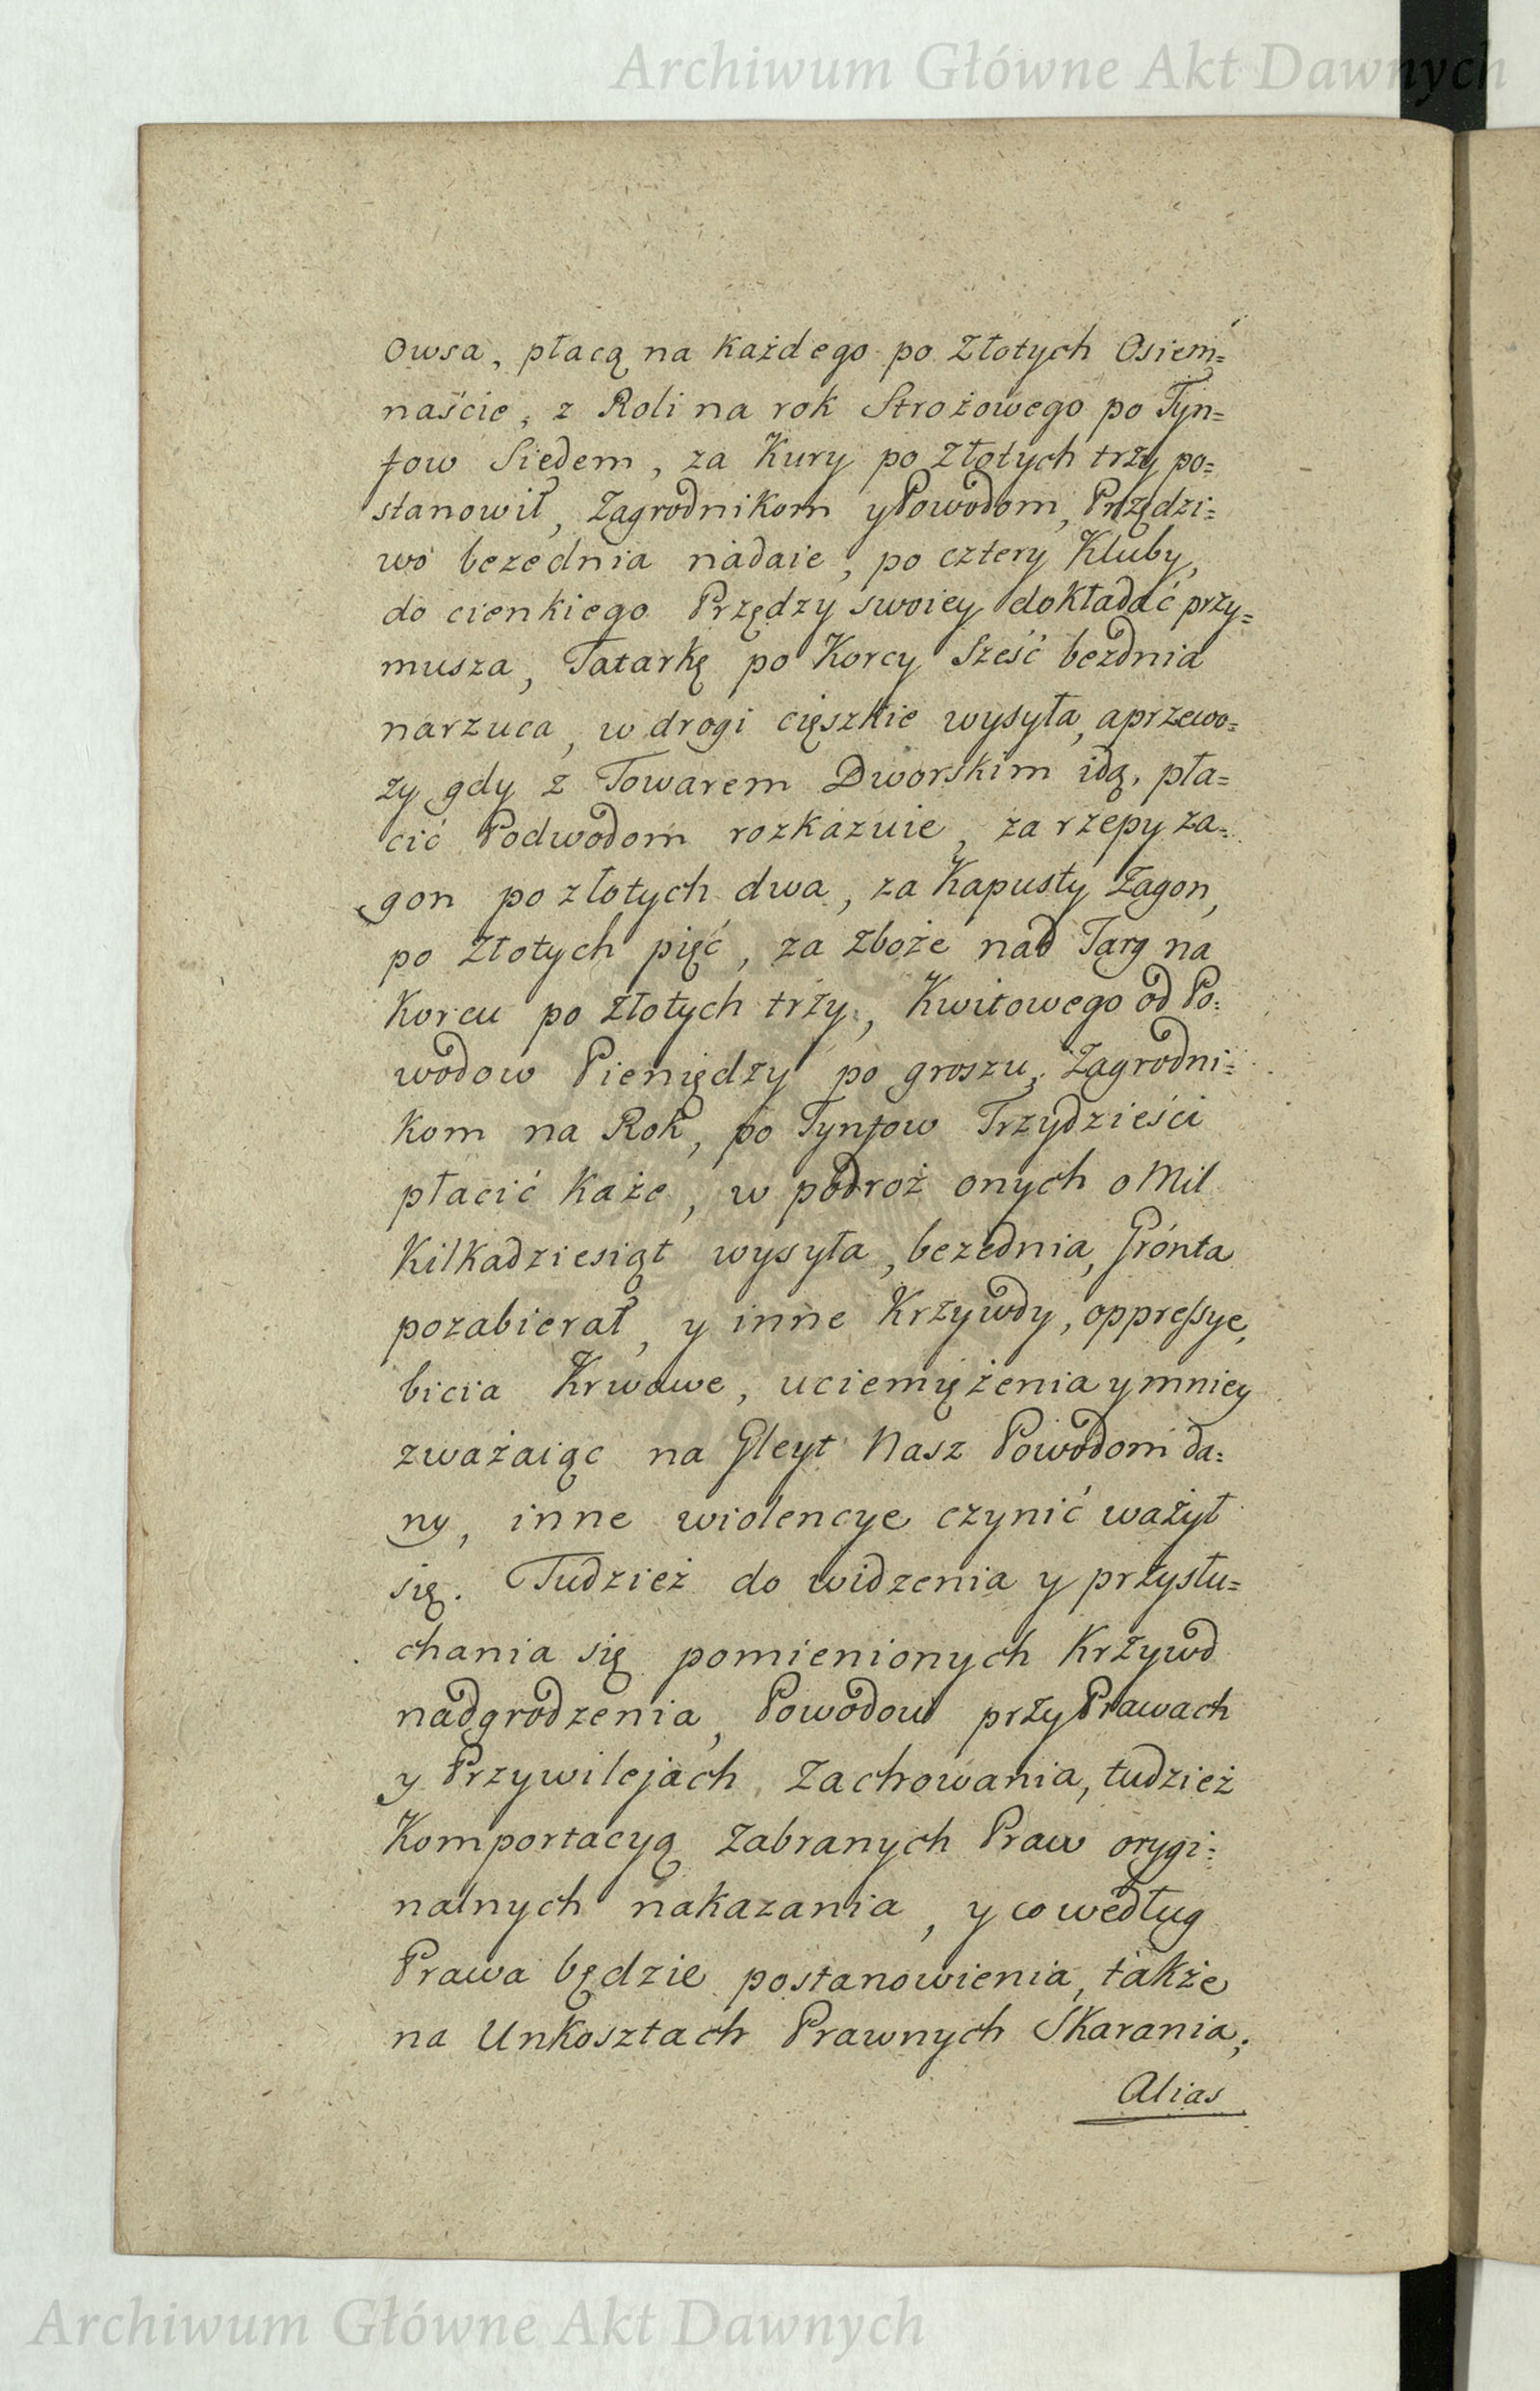 Archiwum Główne Akt Dawnych
Owsa, płacą na każdego po Złotych Osiem=
naście, z Roli na rok Strożowego po Tyn=
fow Siedem, za Kury po Złotych trzy po=
stanowił, Zagrodnikom y Powodom, Przędzi=
wo bezednia nadaie, po cztery Kluby,
do cienkiego Przędzy swoiey dokładać przy=
musza, Tatarkę po Korcy Sześć bezdnia
narzuca, w drogi cięszkie wysyła, a przewo=
zy gdy z Towarem Dworskim idą, pła=
cić Podwodom rozkazuie, za rzepy za=
gon po złotych dwa, za Kapusty Zagon,
po Złotych pięć, za Zboże nad Targ na
Korcu po Złotych trzy, Kwitowego od Po=
wodow Pieniędzy po groszu, Zagrodni=
kom na Rok, po Tynfow Trzydzieści
płacić Każe, w podroż onych o Mil
Kilkadziesiąt wysyła, bezednia, Grónta
pozabierał, y inne Krzywdy, oppressye,
bicia Krwawe, uciemiężenia y mniey
zważaiąc na Gleyt Nasz Powodom da=
ny, inne wiolencye czynić ważył
się. Tudzież do widzenia y przysłu=
chania się pomienionych Krzywd
nadgrodzenia, Powodow przy Prawach
y Przywilejach Zachowania, tudzież
Komportacyą Zabranych Praw orygi=
nalnych nakazania, y co według
Prawa będzie postanowienia, także
na Unkosztach Prawnych Skarania;
Alias
Archiwum Główne Akt Dawnych